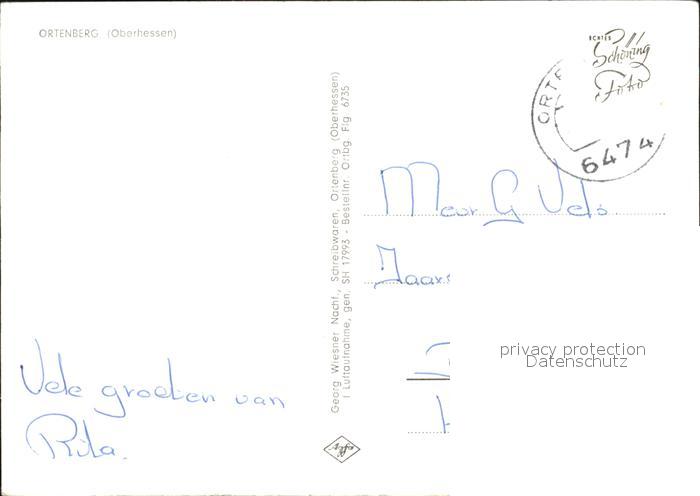 ORTENBERG (Oberhessen)
ECHTES
Schöning
Foto
ORTE
6474
Georg Wiesner Nachf., Schreibwaren, Ortenberg (Oberhessen)
( Luftaufnahme, gen. SH 17993 - Bestellnr. Ortbg. Flg 6735
G Vels
Jaars
privacy protection
Datenschutz
Vele groeten van
Rita.
Agfa